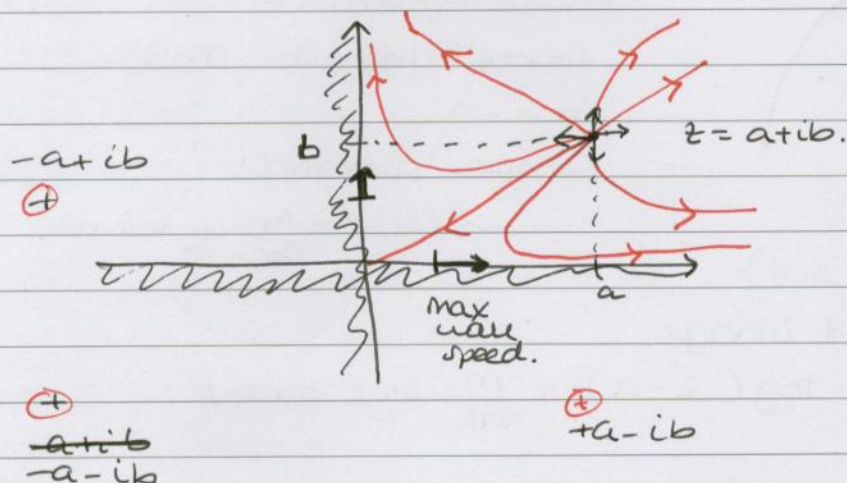 b
z = a+ib.
-a+ib
+
a
max
wall
speed.
+
-a+ib
-a-ib
+
+a-ib